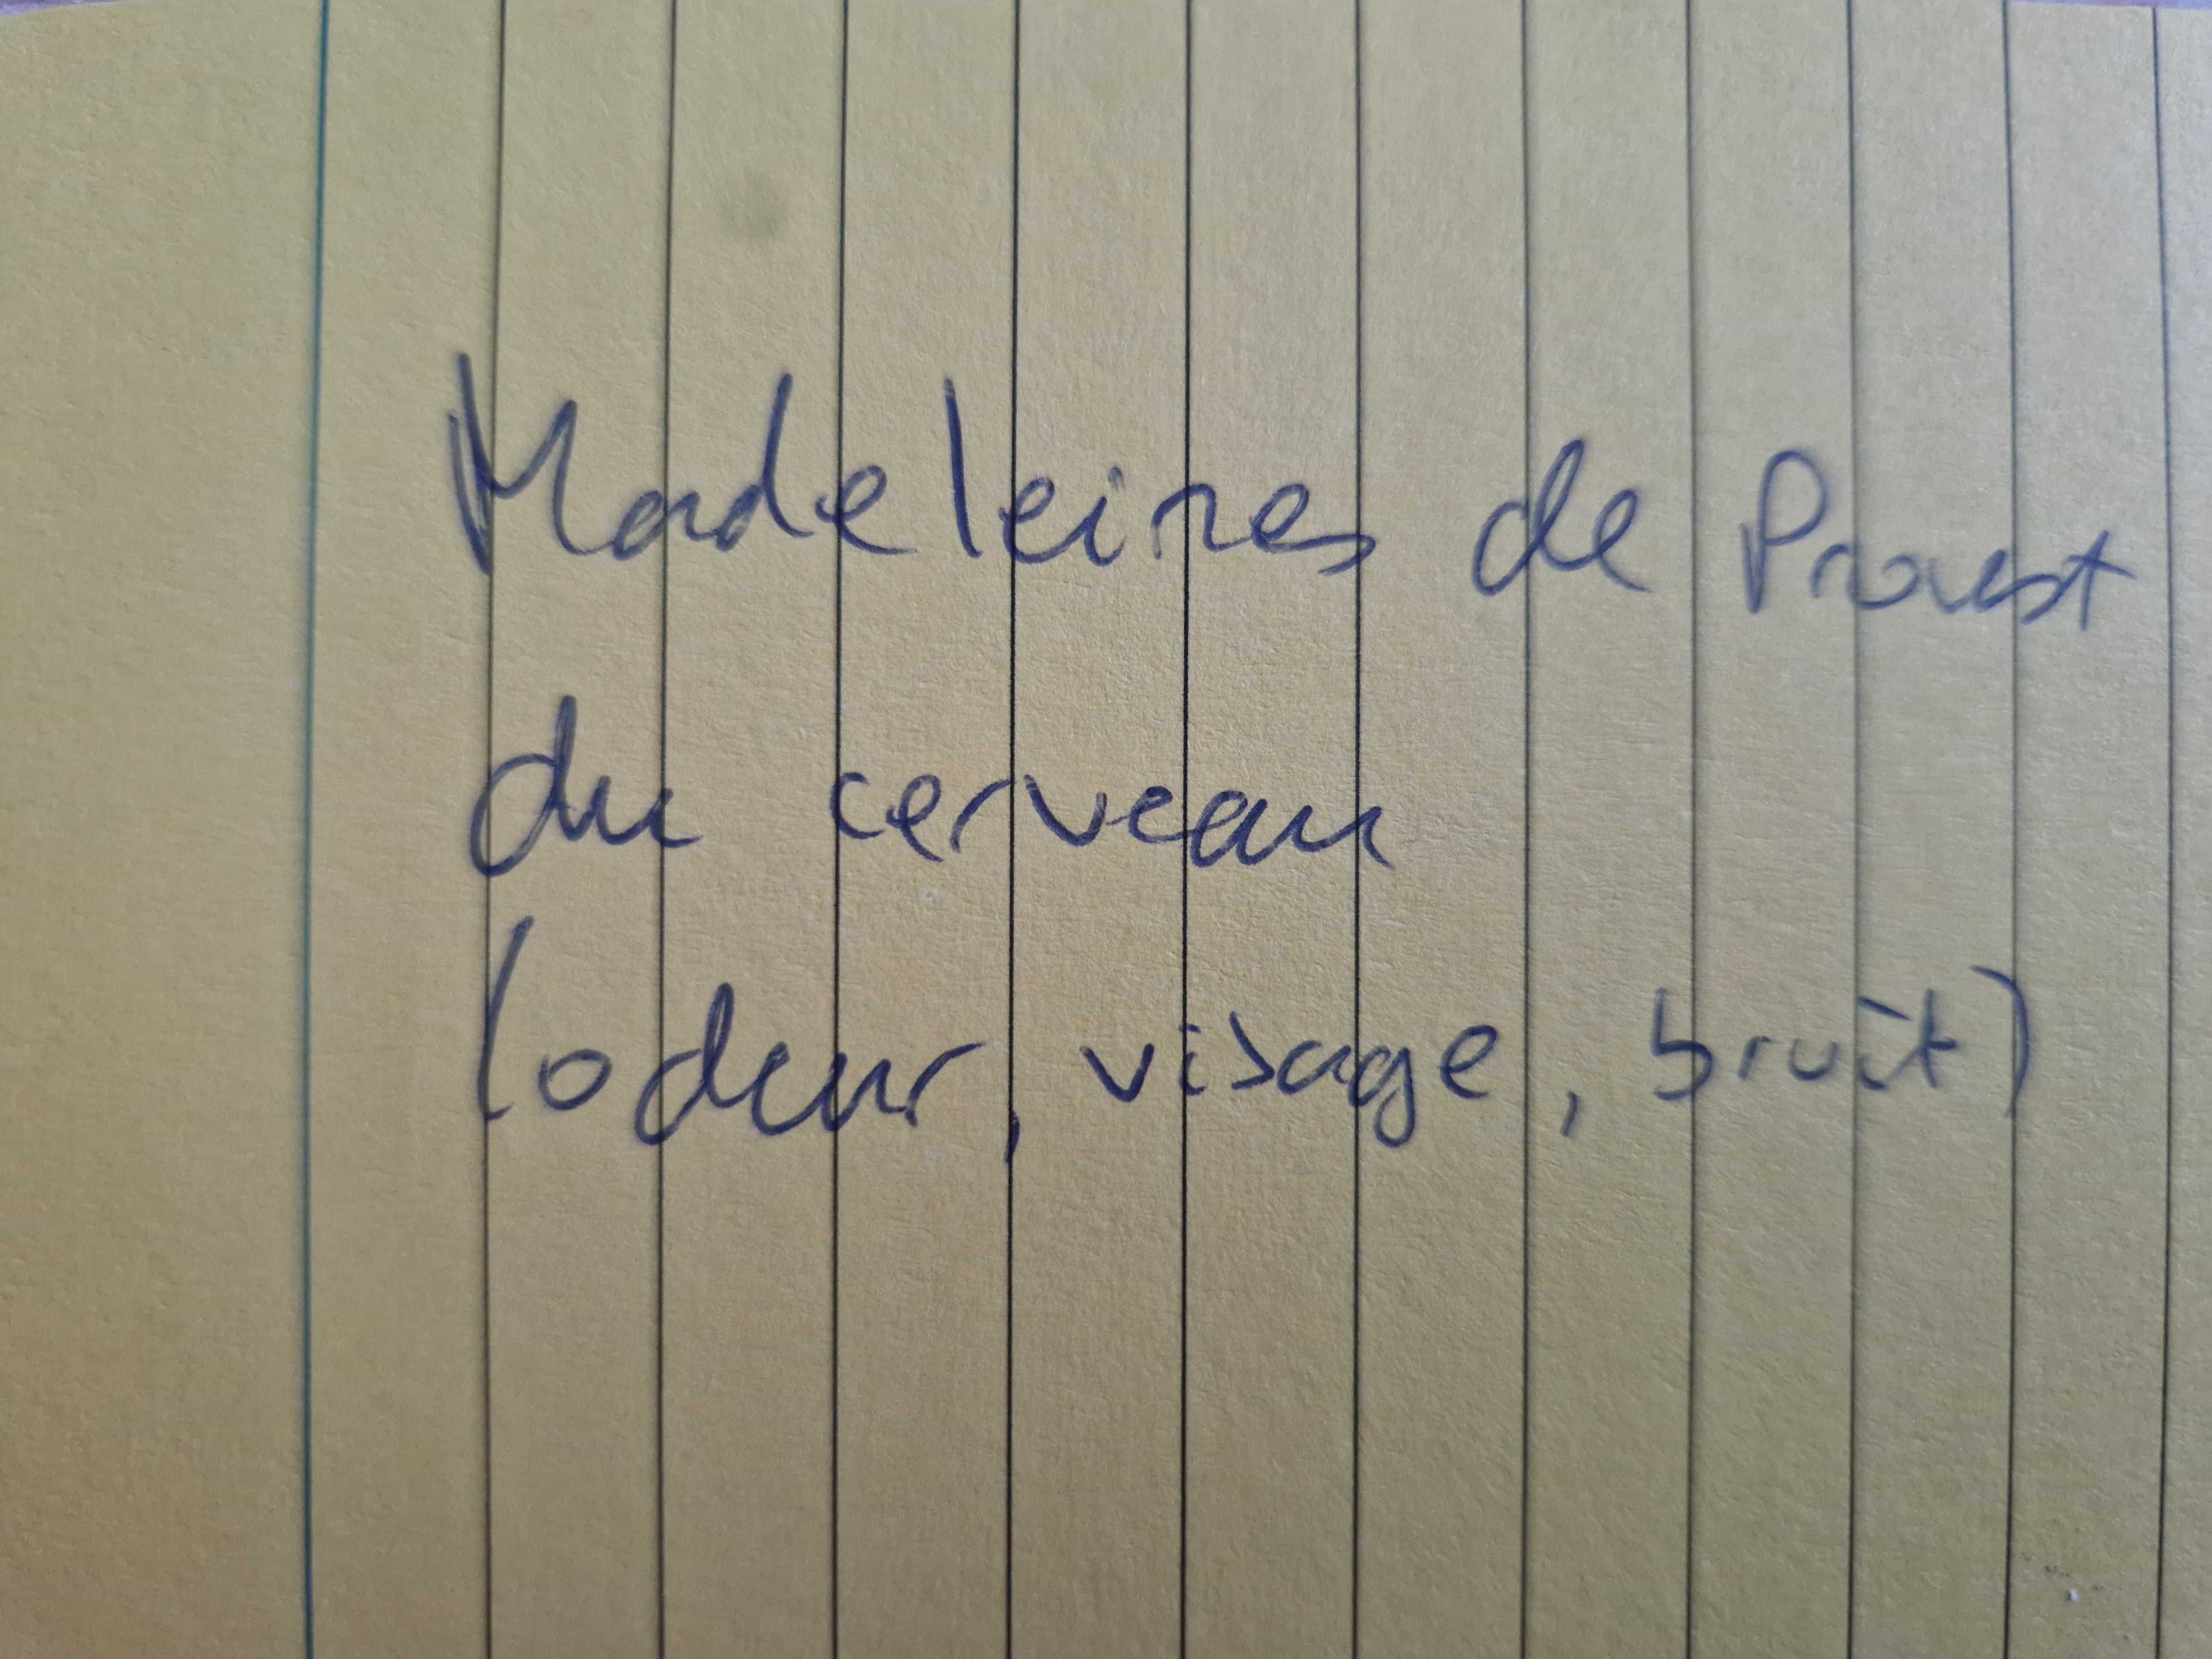 Madeleines de Proust
du cerveau
(odeur, visage, bruit)